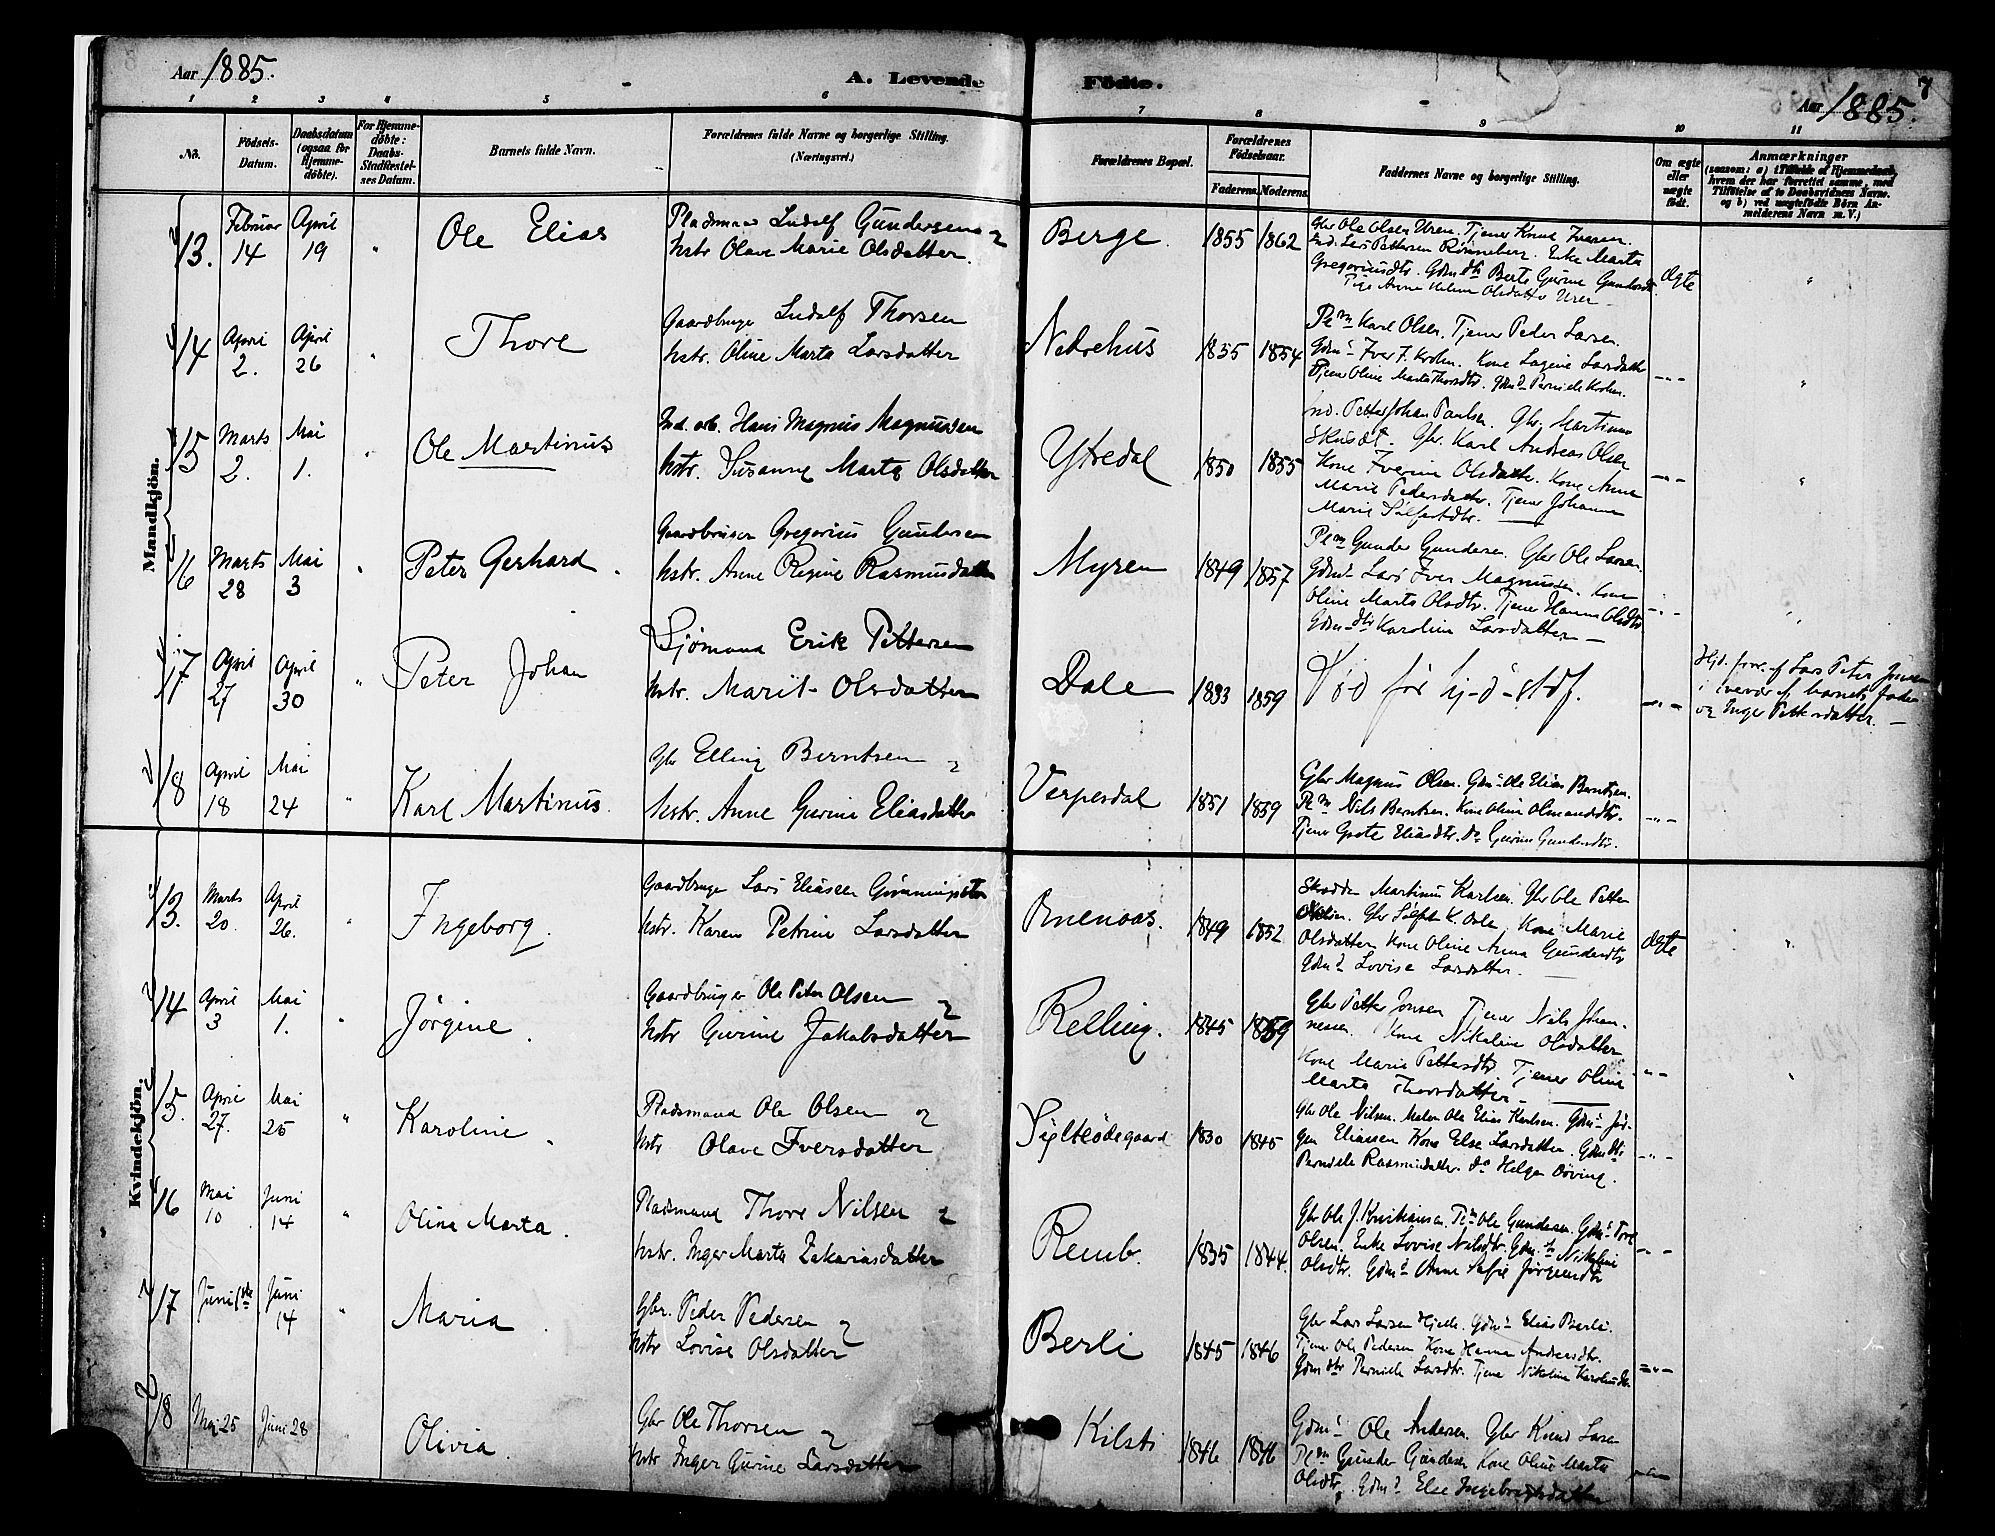 Aar 1885.
A. Levende Fødte.
7
Aar 1885.
1 2 3 4 5 6 7 8 9 10 11
No.
Fødsels-Datum.
Daabsdatum (ogsaa for Hjemme-døbte).
For Hjemme-døbte: Daabs-Stadfæstel-ses Datum.
Barnets fulde Navn.
Forældrenes fulde Navne og borgerlige Stilling.
(Næringsvei.)
Forældrenes Bopæl.
Forældrenes Fødselsaar.
Faderens. Moderens.
Faddernes Navne og borgerlige Stilling.
Om ægte eller uægte født.
Anmærkninger
(saasom: a) i Tilfælde af Hjemmedaab, hvem der har forrettet samme, med Tilføielse af to Daabsvidners Navne. og b) ved uægtefødte Børn An-melderens Navn m. V.)
Mandkjøn.
13. Februar 14 April 19 " Ole Elias
Pladsmand Ludolf Gundersen og
Hstr Olave Marie Olsdatter.
Berge. 1855 1862
Gbr Ole Olsen Uren. Tjener Knut Iversen.
Ind. Lars Pettersen Rønneberg. Enke Marta
Gregoriusdtr. Gdmdtr Berte Gurine Gundersdtr.
Pige Anne Olsdatter Uren
Ægte "
14 April 2. April 26 " Thore
Gaardbruger Ludolf Thorsen
Hstr. Oline Marta Larsdatter
Nedrehus 1855 1854
Plm Karl Olsen. Tjener Peder Larsen.
Gdms Iver I. Krohn. Kone Larsdatter
Tjener Oline Marta Thorsdtr. Pernille Krohn.
-"- "
15 Marts 2. Mai 1. " Ole Martinus
Ind. arb. Hans Magnus Magnussen
Hstr. Susanne Marta Olsdatter
Ytredal 1850 1855
Ind. Petter Johan Paulsen. Gbr. Martinus
Gbr. Karl Andreas Olsen
Kone Iverine Olsdatter. Kone Anne
Marie Pedersdatter. Tjener Johanne
Marie
-"- "
16 Marts 28 Mai 3 " Peter Gerhard.
Gaardbruger Gregorius Gundersen
Hstr. Anne Regine Rasmusdatter
Myren 1849 1857
Plm Gunder Gundersen. Gbr Ole Larsen.
Gdms Lars Iver Magnussen. Kone
Oline Marta Olsdtr. Tjener Hanna Olsdtr
Gdmdtr Karoline Larsdatter
-"- "
17 April 27 April 30 " Peter Johan
Sjømand Erik Pettersen
Hstr. Marit Olsdatter
Dale 1883 1859
Død før hj-d-stdf.
-"-
Hjd. forr. af Lars Peter
i nærvær af barnets fader
og Inger Pettersdatter.
18 April 18 Mai 24 " Karl Martinus.
Gbr Elling Berntsen og
Hstr. Anne Gurine Eliasdatter
Verpesdal 1851 1859
Gbr Magnus Olsen. Gdms Ole Elias Berntsen.
Plm Nils Berntsen. Kone Oline
Tjener Grete Eliasdtr. do Gurine Gundersdtr.
-"-
Kvindekjøn.
13. Marts 20. April 26. " Ingeborg.
Gaardbruger Lars Eliasen
Hstr. Karen Petrine Larsdatter
1849 1852
Skrædder Martinus Karlsen. Gbr Ole Petter
Kone Marie
Olsdatter Kone Oline Anna Gundersdtr
Lovise Larsdatter.
Ægte "
14 April 3 Mai 1. " Jørgine.
Gaardbruger Ole Peter Olsen og
Hstr Gurine Jakobsdatter
Relling. 1845 1859
Gbr Petter Jonsen Tjener Nils Johan-
nesen. Kone Nikoline Olsdatter
Kone Marie Pettersdtr. Tjener Oline
Marta Thorsdatter
-"- "
15. April 27. Mai 25 " Karoline.
Pladsmand Ole Olsen og
Hstr Olave Iversdatter
Syltesødegaard 1830 1845
Gbr Ole Nilsen. Maler Ole Elias Karlsen. Gdms Jør-
gen Eliassen Kone Else Larsdatter. Gdmdtr
Pernille Rasmusdatter do Helga Døving.
-"-
16 Mai 10 Juni 14 " Oline Marta.
Pladsmand Thore Nilsen og
Hstr. Inger Marta Zakariasdatter
Remb. 1835 1844.
Gbr Ole J. Kristiansen. Plm Ole Gundersen. Gdms Tore
Olsen. Enke Lovise Nilsdtr. Gdmdtr Nikoline
Olsdtr. Anne Sofie Jørgensdtr
-"-
17 Juni 1ste Juni 14 " Maria.
Gbr. Peder Pedersen og
Hstr Lovise Olsdatter
Berli 1845 1846
Gbr Lars Larsen Hjelle. Gdms Elias Berli.
Tjener Ole Pedersen Kone Hanna Andersdtr.
Gdmdtr Pernille Larsdtr. Tjener Nikoline
-"-
18 Mai 25 Juni 28 Olivia
Gbr Ole Thorsen og
Hstr Inger Gurine Larsdatter
Kilsti 1846 1846
Gdms Ole Andersen. Gbr Knud Larsen
Plm Gunder Gundersen Kone Oline Marta
Olsdtr. Else Ingebrigtsdatter
-"-